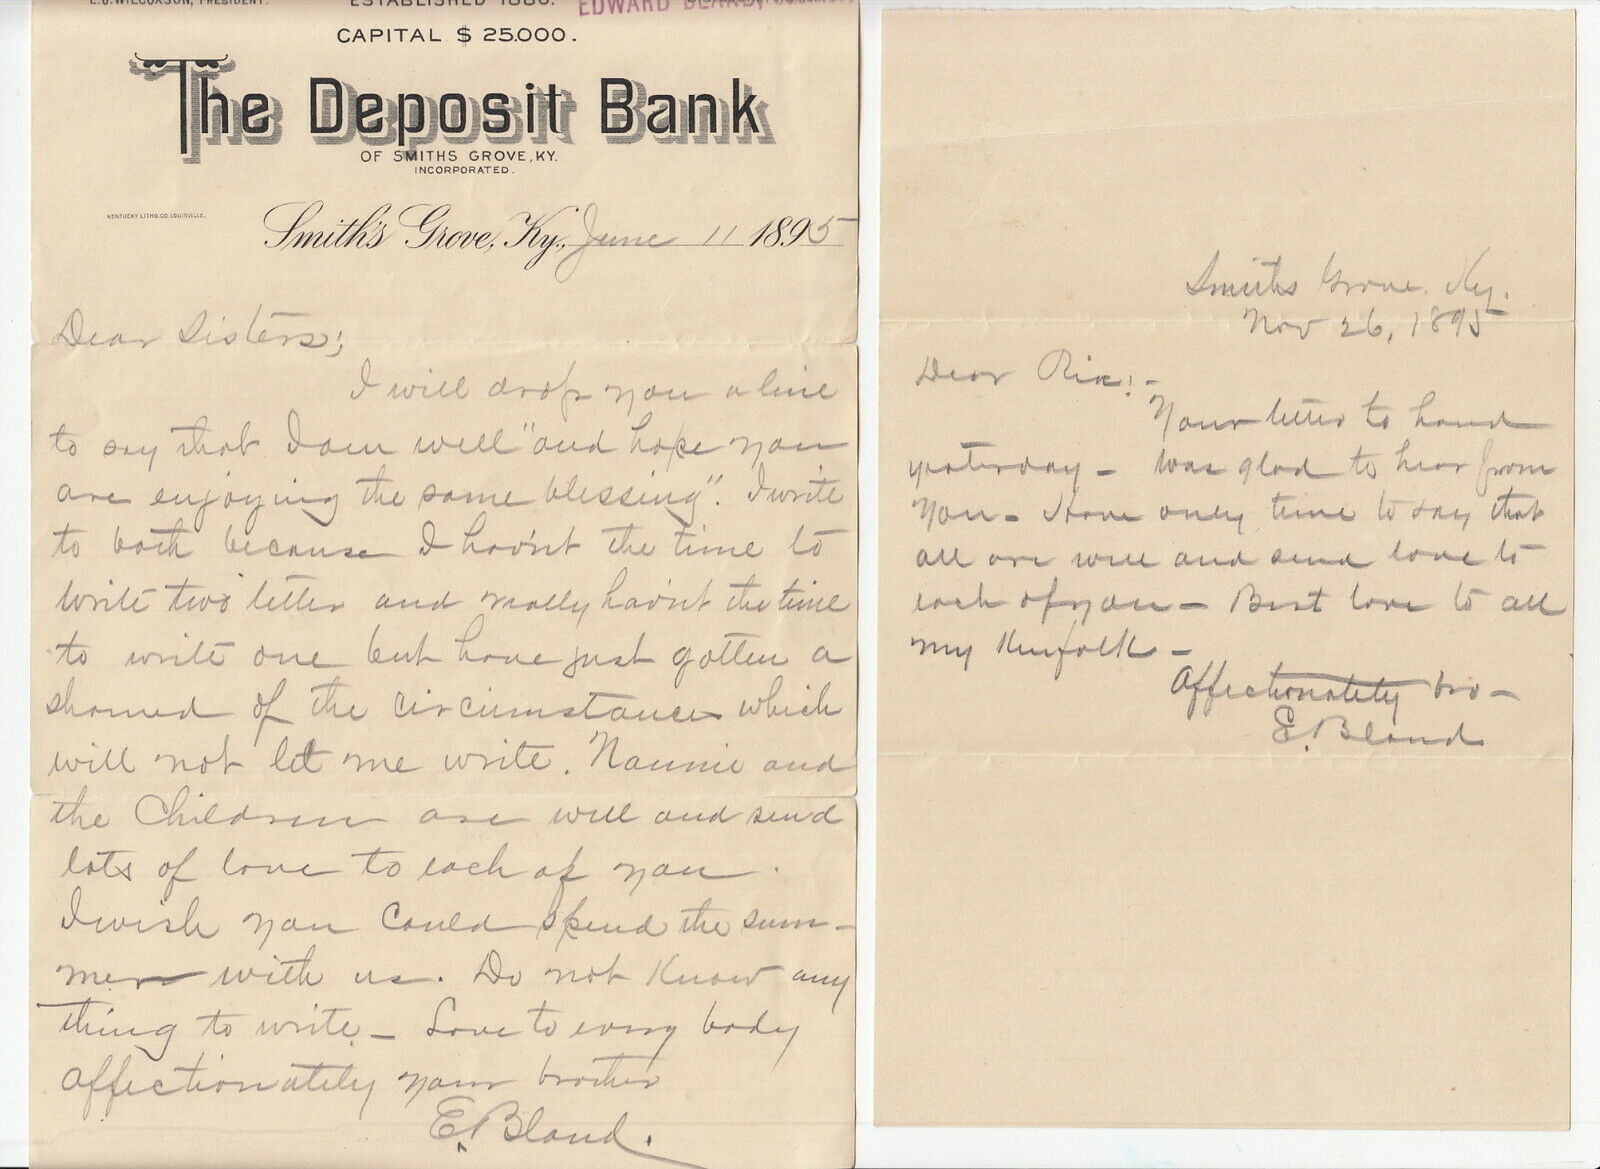 L.G. WILCOXSON, PRESIDENT.
ESTABLISHED 1886.
EDWARD BLAND,
CAPITAL $ 25.000.
The Deposit Bank
OF SMITHS GROVE, KY.
INCORPORATED.
KENTUCKY LITHO. CO. LOUISVILLE.
Smith's Grove, Ky., June 11 1895
Dear Sisters;
I will drop you a line
to say that I am well "and hope you
are enjoying the same blessing". I write
to both because I hav'nt the time to
write two letter and really hav'nt the time
to write one but have just gotten a
shamed of the circumstances which
will not let me write. Nannie and
the Children are well and send
lots of love to each of you.
I wish you Could spend the sum-
mer with us. Do not Know any
thing to write - Love to every body
Affectionately your brother
E. Bland.
Smiths Grove Ky.
Nov 26, 1895
Dear Rix:-
Your letter to hand
yesterday - Was glad to hear from
you - Have only time to say that
all are well and send love to
each of you - Best love to all
my Kinfolk -
Affectionately bro -
E. Bland